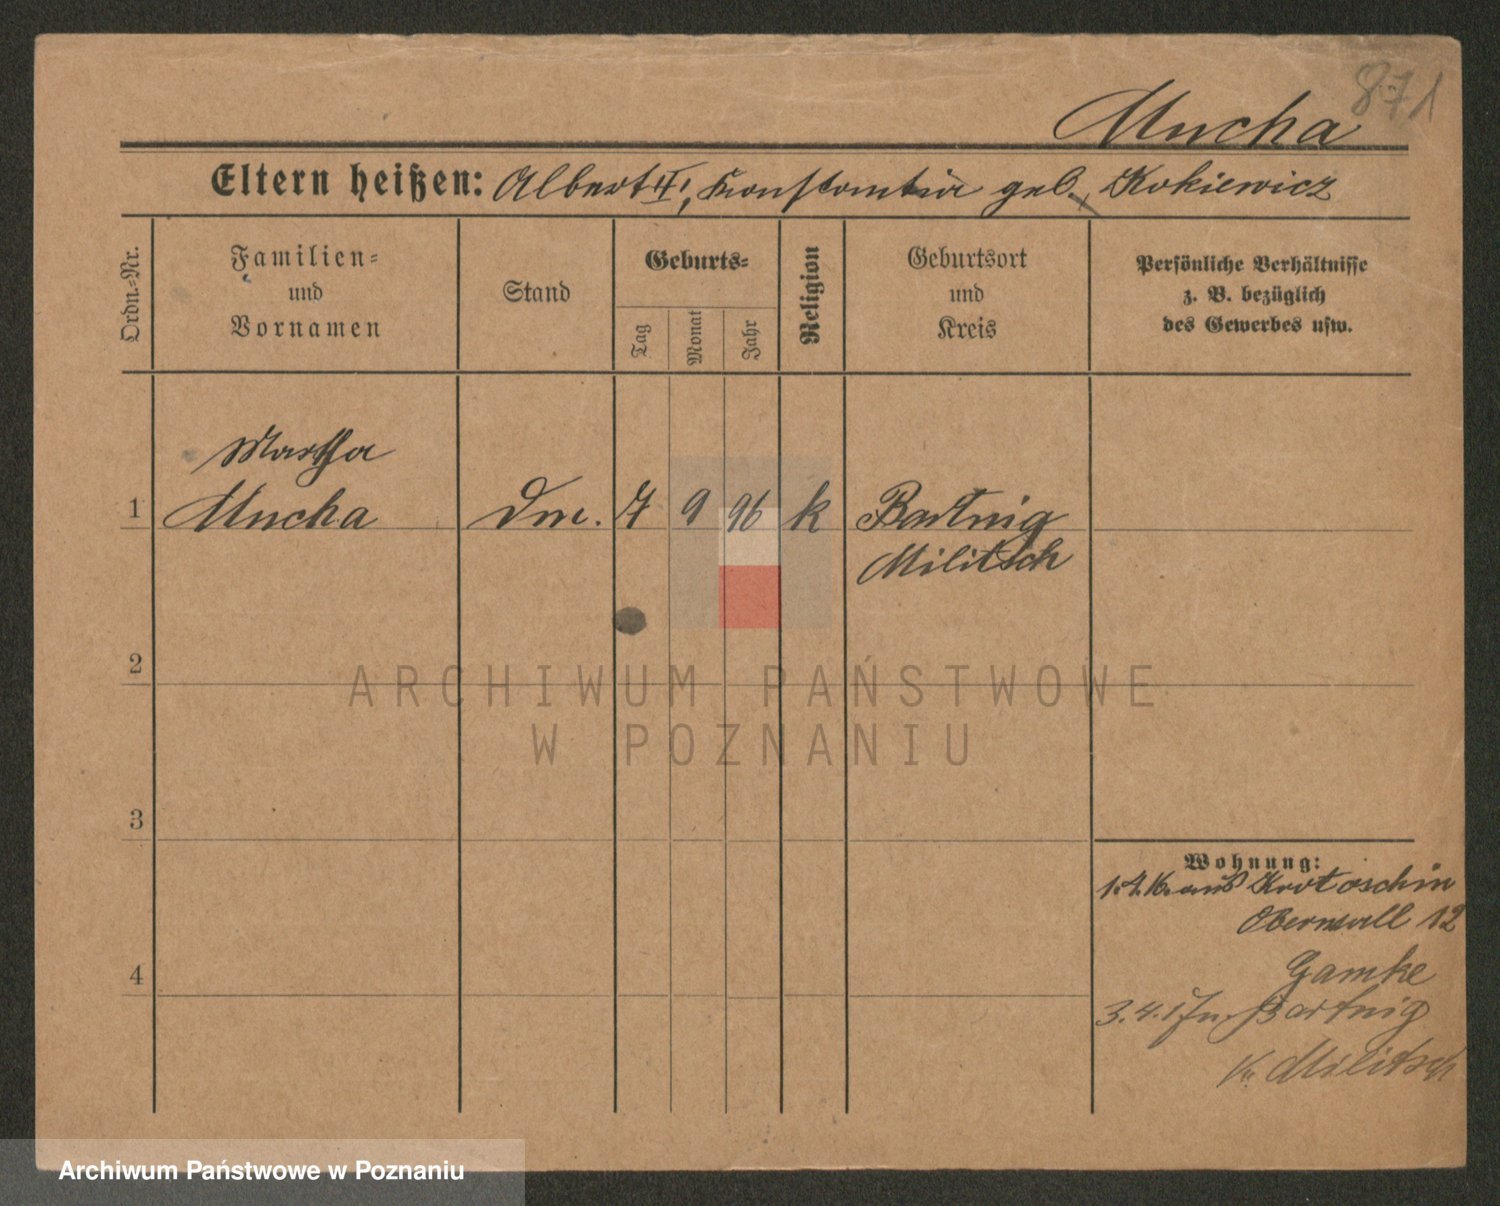 871
Mucha
Eltern heißen: Albert II, Konstantia geb. Kokiewicz
Ordn.-Nr.
Familien=
und
Vornamen
Stand
Geburts=
Tag
Monat
Jahr
Religion
Geburtsort
und
Kreis
Persönliche Verhältnisse
z. B. bezüglich
des Gewerbes usw.
Martha
1 Mucha Dm. 7 9 96 k Bartnig
Militsch
2
3
4
Wohnung:
1.4.16. aus Krotoschin
Oberwall 12
Gamke
3.4.17 n. Bartnig
Kr. Militsch
ARCHIWUM PAŃSTWOWE
W POZNANIU
Archiwum Państwowe w Poznaniu